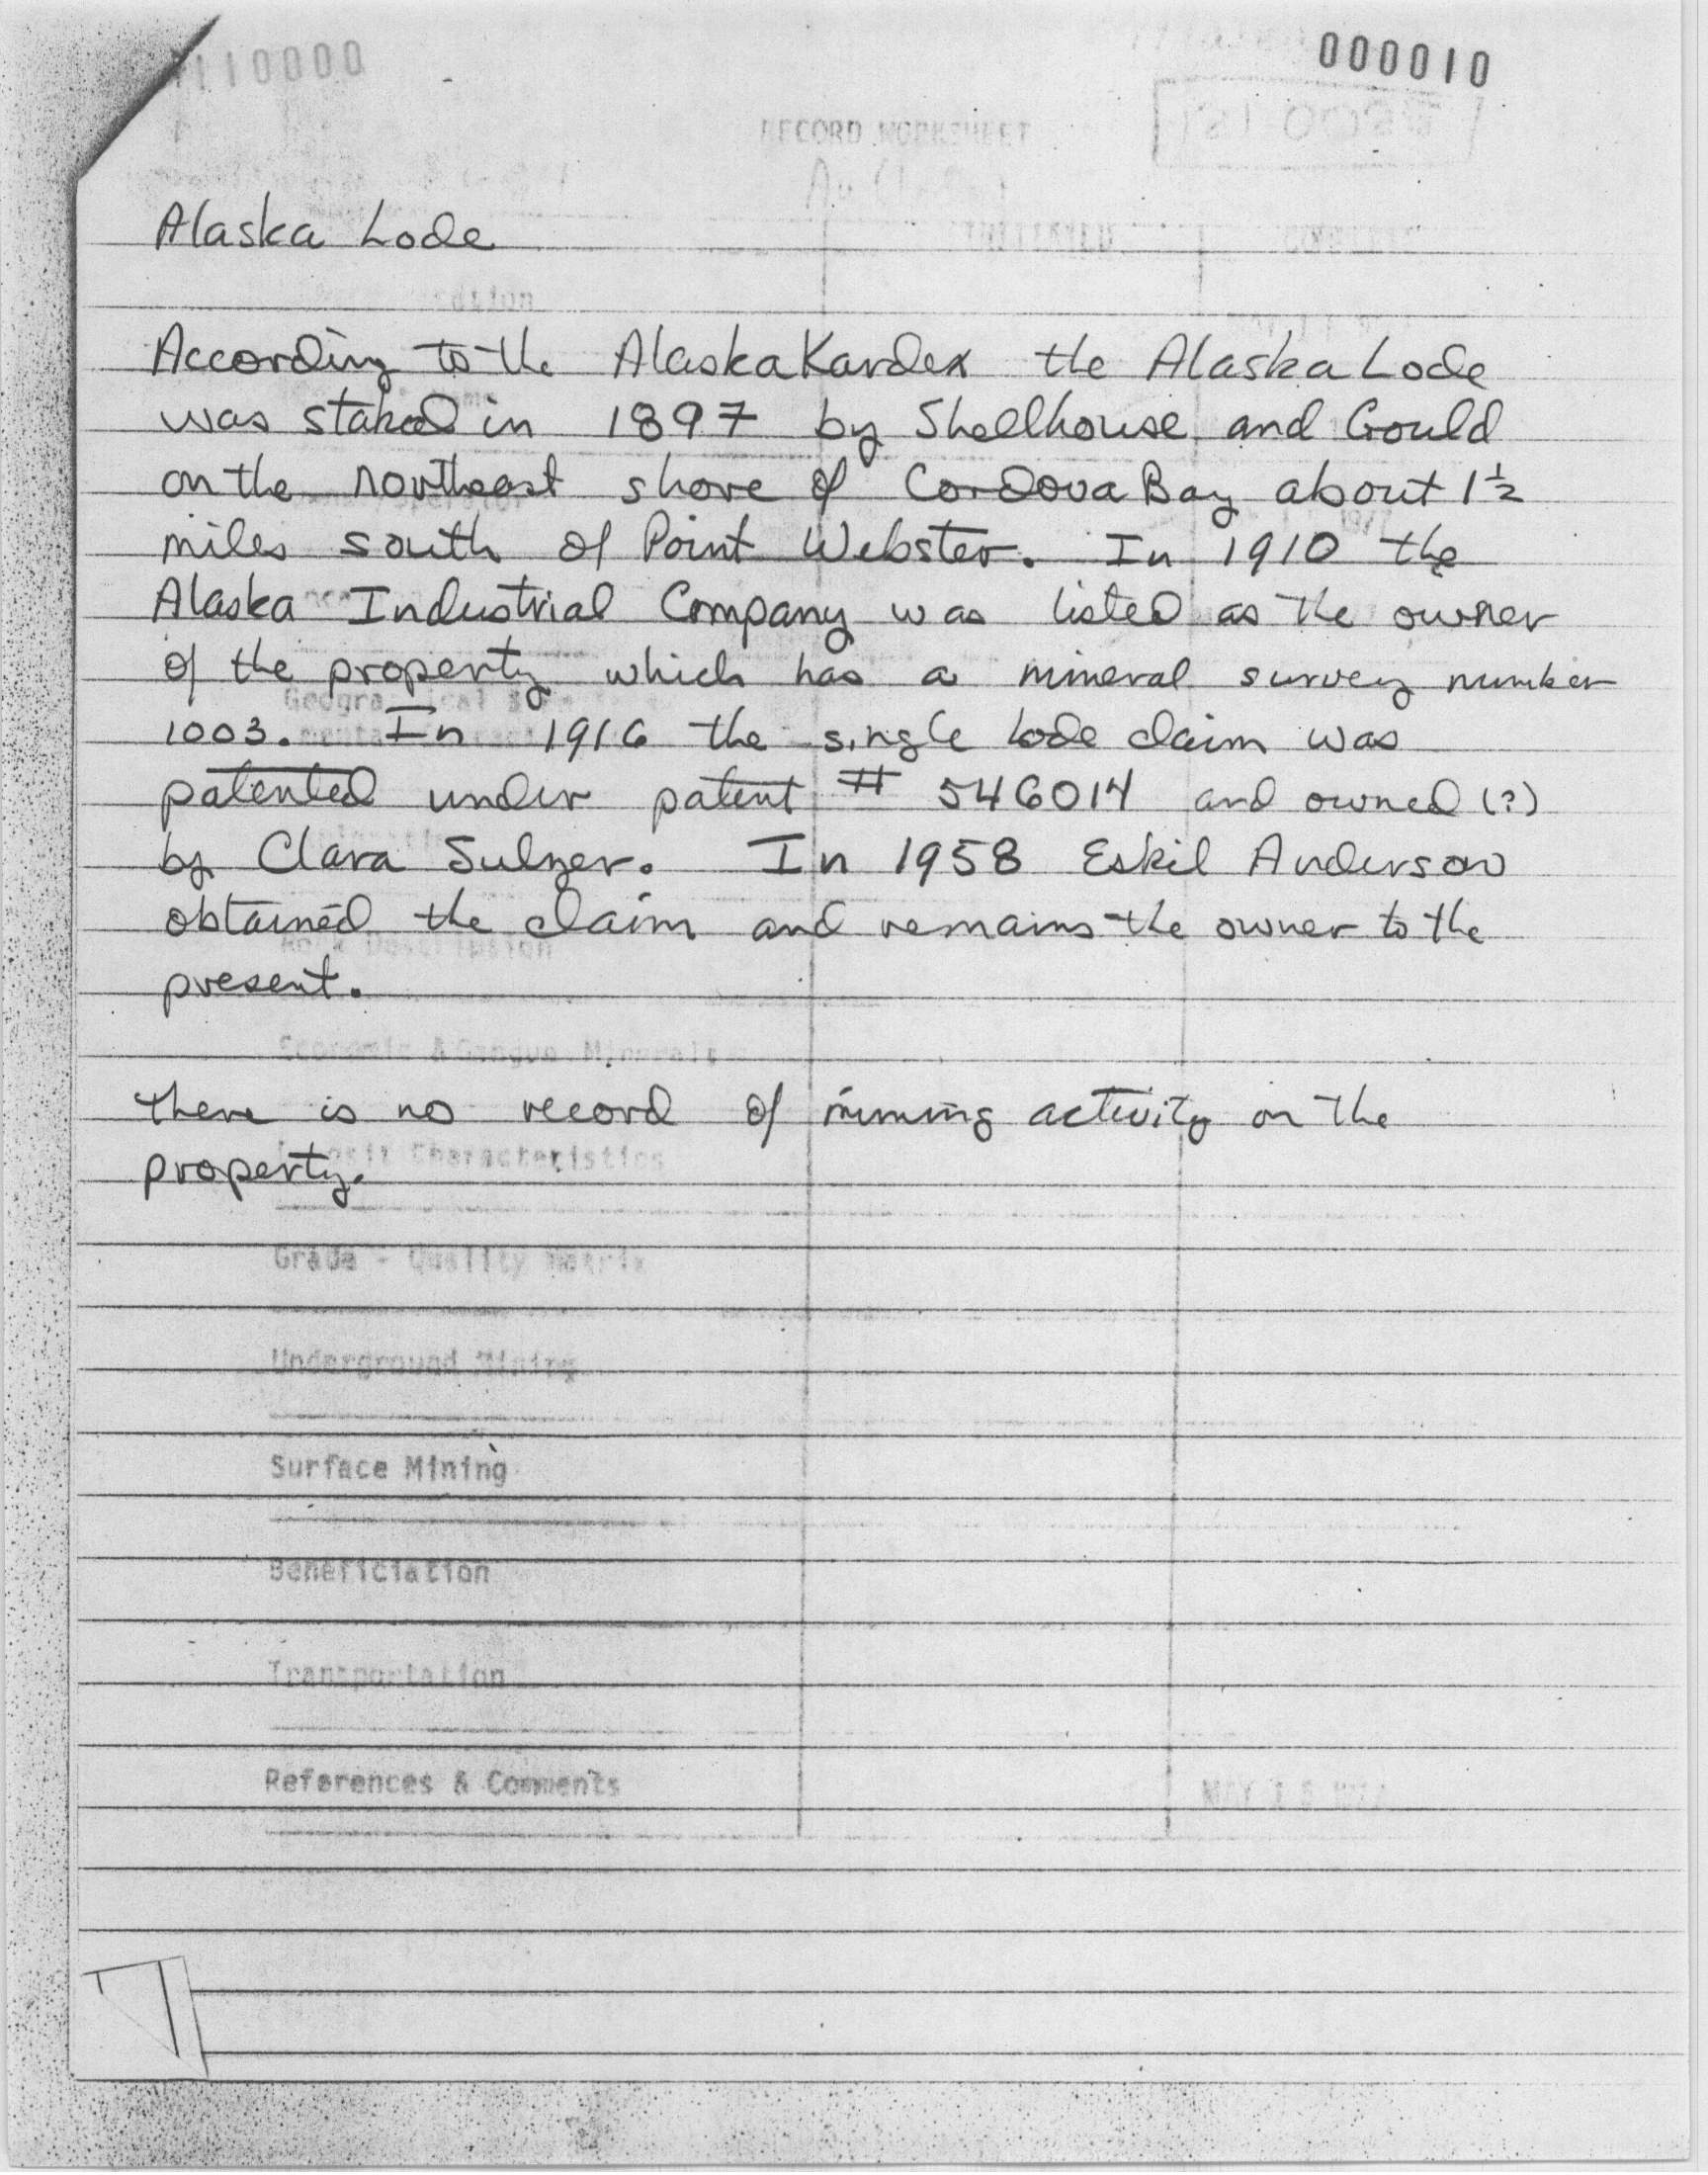 000010
RECORD WORKSHEET
Alaska Lode
According to the Alaska Kardex the Alaska Lode
was staked in 1897 by Shellhouse and Gould
on the northeast shore of Cordova Bay about 1½
miles south of Point Webster. In 1910 the
Alaska Industrial Company was listed as the owner
of the property which has a mineral survey number
1003. In 1916 the single lode claim was
patented under patent # 546014 and owned (?)
by Clara Sulzer. In 1958 Eskil Anderson
obtained the claim and remains the owner to the
present.
Economic & Gangue Minerals
there is no record of mining activity on the
Deposit Characteristics
property.
Grade - Quality Matrix
Underground Mining
Surface Mining
Beneficiation
Transportation
References & Comments